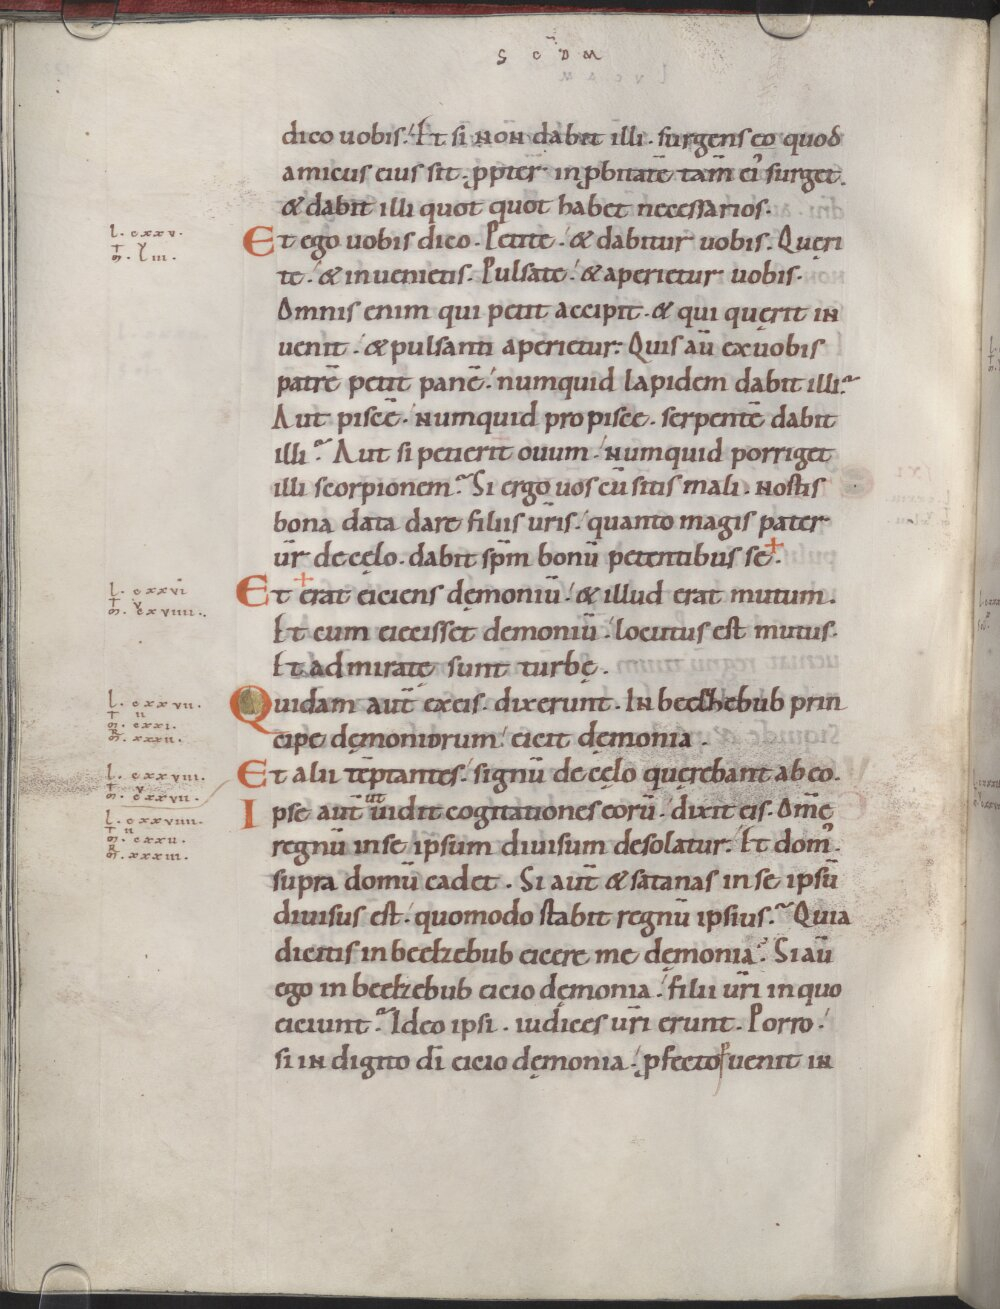 SCDM̅
dico uobis. Et si non dabit illi. surgens eo quod
amicus eius sit. ꝓpter inꝓbitatē tam̄ ei᾽ surget.
& dabit illi quot quot habet necessarios.
l. cxxv.
Et ego uobis dico. Petite. & dabitur uobis. Queri
m̄. liii.
te. & inuenietis. Pulsate. & aperietur uobis.
Omnis enim qui petit accipit. & qui querit in
uenit. & pulsanti aperietur. Quis au̅ ex uobis
patrē petit panē. numquid lapidem dabit illi?
Aut piscē. numquid pro pisce. serpentē dabit
illi? Aut si petierit ouum. numquid porriget
illi scorpionem? Si ergo uos cū sitis mali. nostis
bona data dare filiis ur̄is. quanto magis pater
ur̄ de cęlo. dabit spm̄ bonū petentibus se.
l. cxxvi
Et erat eiciens dęmoniū. & illud erat mutum.
m̄. cxviiii.
Et cum eiecisset demoniū. locutus est mutus.
Et admiratę sunt turbę.
l. cxxvii.
Quidam aut̄ ex eis. dixerunt. In beelzhebub prin
m̄. cxxi.
R̄. xxxii.
cipe dęmoniorum. eicit dęmonia.
l. cxxviii.
Et alii tēptantes. signū de cęlo quęrebant ab eo.
m̄. cxxvii.
Ipse aut̄ ut uidit cogitationes eorū. dixit eis. Om̄e
l. cxxviiii.
m̄. cxxii.
R̄. xxxiii.
regnū in se ipsum diuisum desolatur. Et dom᾽
supra domū cadet. Si aut̄ & satanas in se ipsū
diuisus est. quomodo stabit regnū ipsius? Quia
dicitis in beelzebub eicere me dęmonia? Si au̅
ego in beelzebub eicio dęmonia. filii ur̄i in quo
eiciunt? Ideo ipsi. iudices ur̄i erunt. Porro.
si in digito dī eicio dęmonia. ꝓfecto uenit in